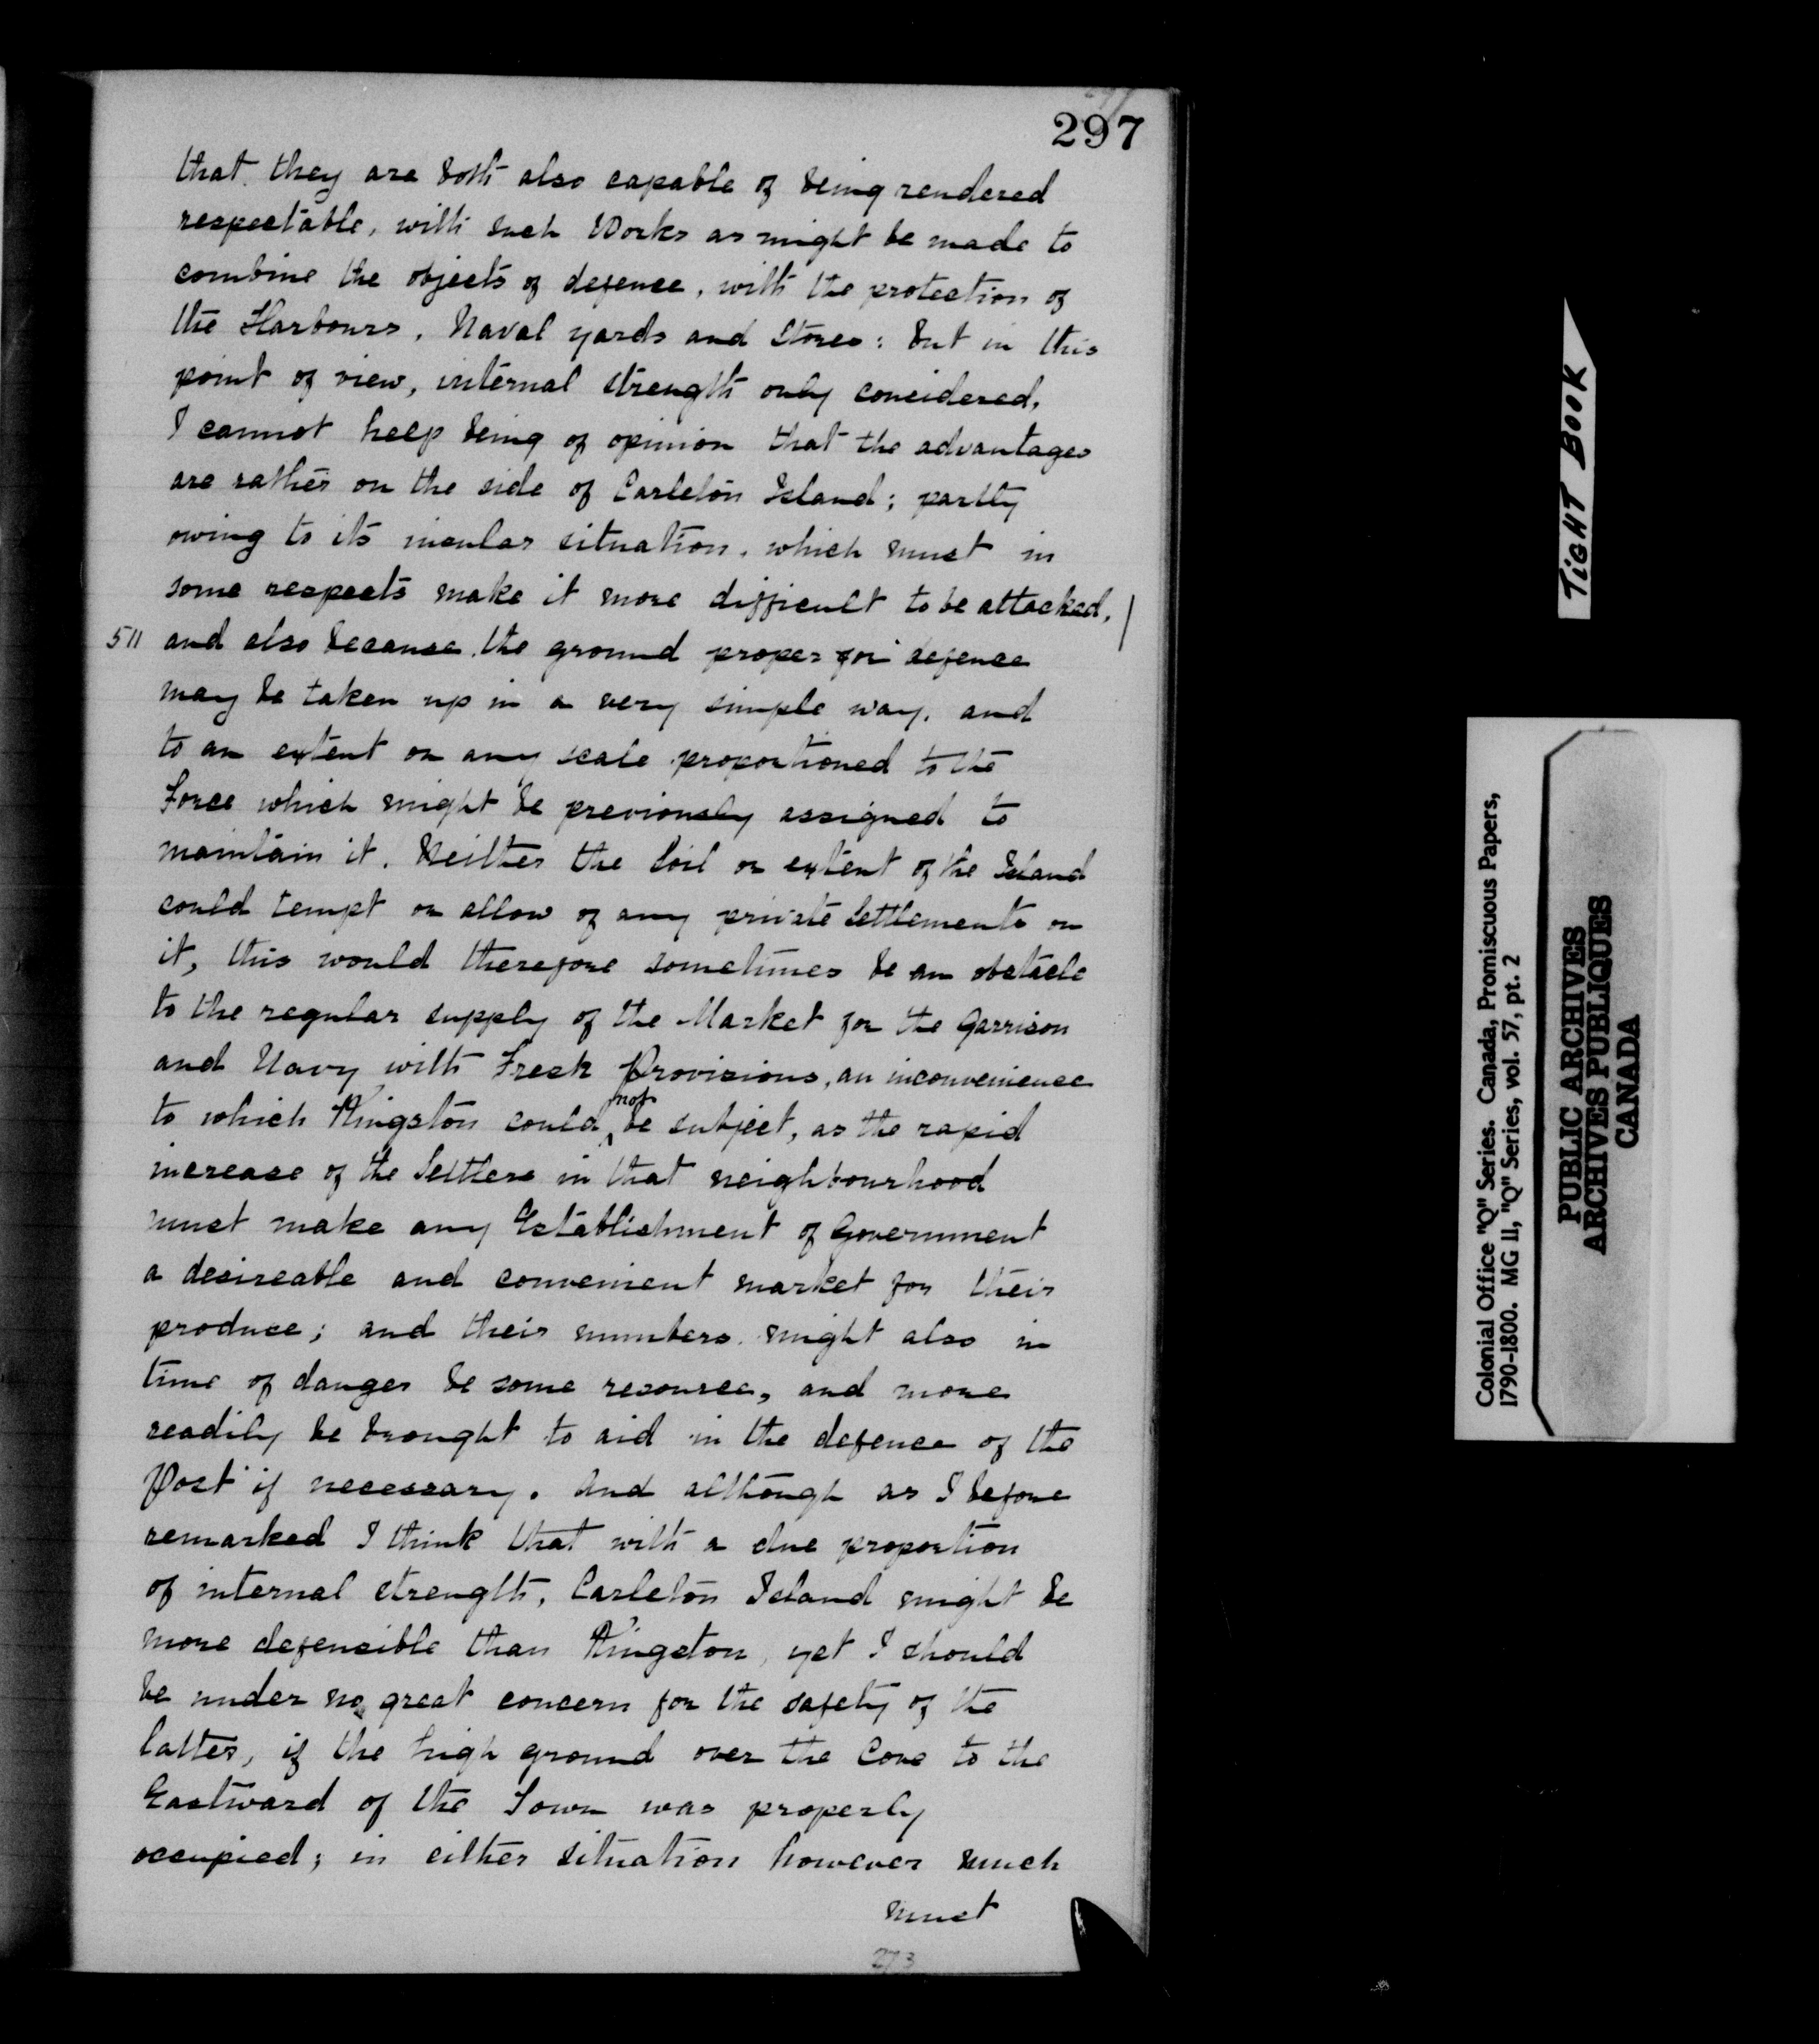 297
that they are both also capable of being rendered
respectable, with such Works as might be made to
combine the objects of defence, with the protection of
the Harbours, Naval yards and Stores: but in this
point of view, internal strength only considered,
I cannot help being of opinion that the advantages
are rather on the side of Carleton Island; partly
owing to its insular situation, which must in
some respects make it more difficult to be attacked, /
511 and also because the ground proper for defence
may be taken up in a very simple way, and
to an extent on any scale proportioned to the
Force which might be previously assigned to
maintain it. Neither the Soil or extent of the Island
could tempt or allow of any private Settlements on
it, this would therefore sometimes be an obstacle
to the regular supply of the Market for the Garrison
and Navy with Fresh Provisions, an inconvenience
to which Kingston could not be subject, as the rapid
increase of the Settlers in that neighbourhood
must make any Establishment of Government
a desireable and convenient market for their
produce; and their numbers might also in
time of danger be some resource, and more
readily be brought to aid in the defence of the
Post if necessary. And although as I before
remarked I think that with a due proportion
of internal strength, Carleton Island might be
more defensible than Kingston, yet I should
be under no great concern for the safety of the
latter, if the high ground over the Cove to the
Eastward of the Town was properly
occupied; in either situation however much
must
273
TIGHT BOOK
Colonial Office "Q" Series. Canada, Promiscuous Papers,
1790-1800. MG 11, "Q" Series, vol. 57, pt. 2
PUBLIC ARCHIVES
ARCHIVES PUBLIQUES
CANADA